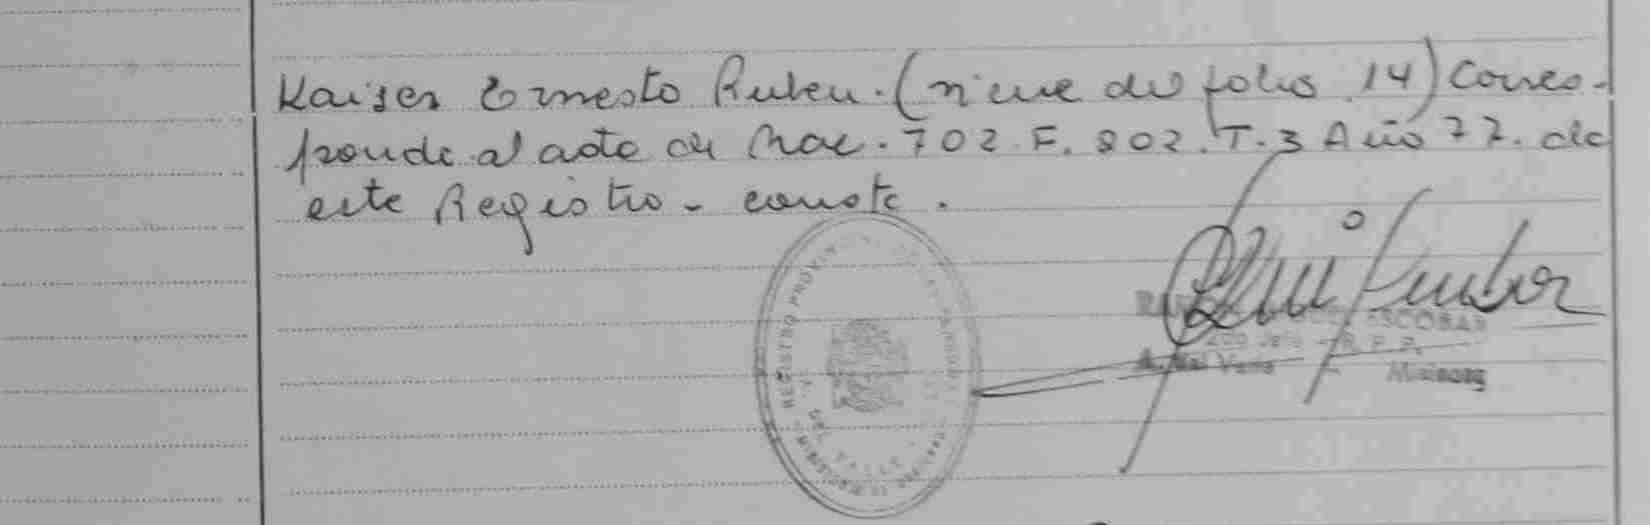 Kaiser Ernesto Ruben. (viene de folio 14) Corres-
ponde al acta de Nac. 702. F. 802. T. 3 Año 77. de
este Registro - conste.
REGISTRO PROVIN
A. DEL VALLE
MINISTERIO DE
ESCOBAR
R. P. P.
A. del Valle Misiones